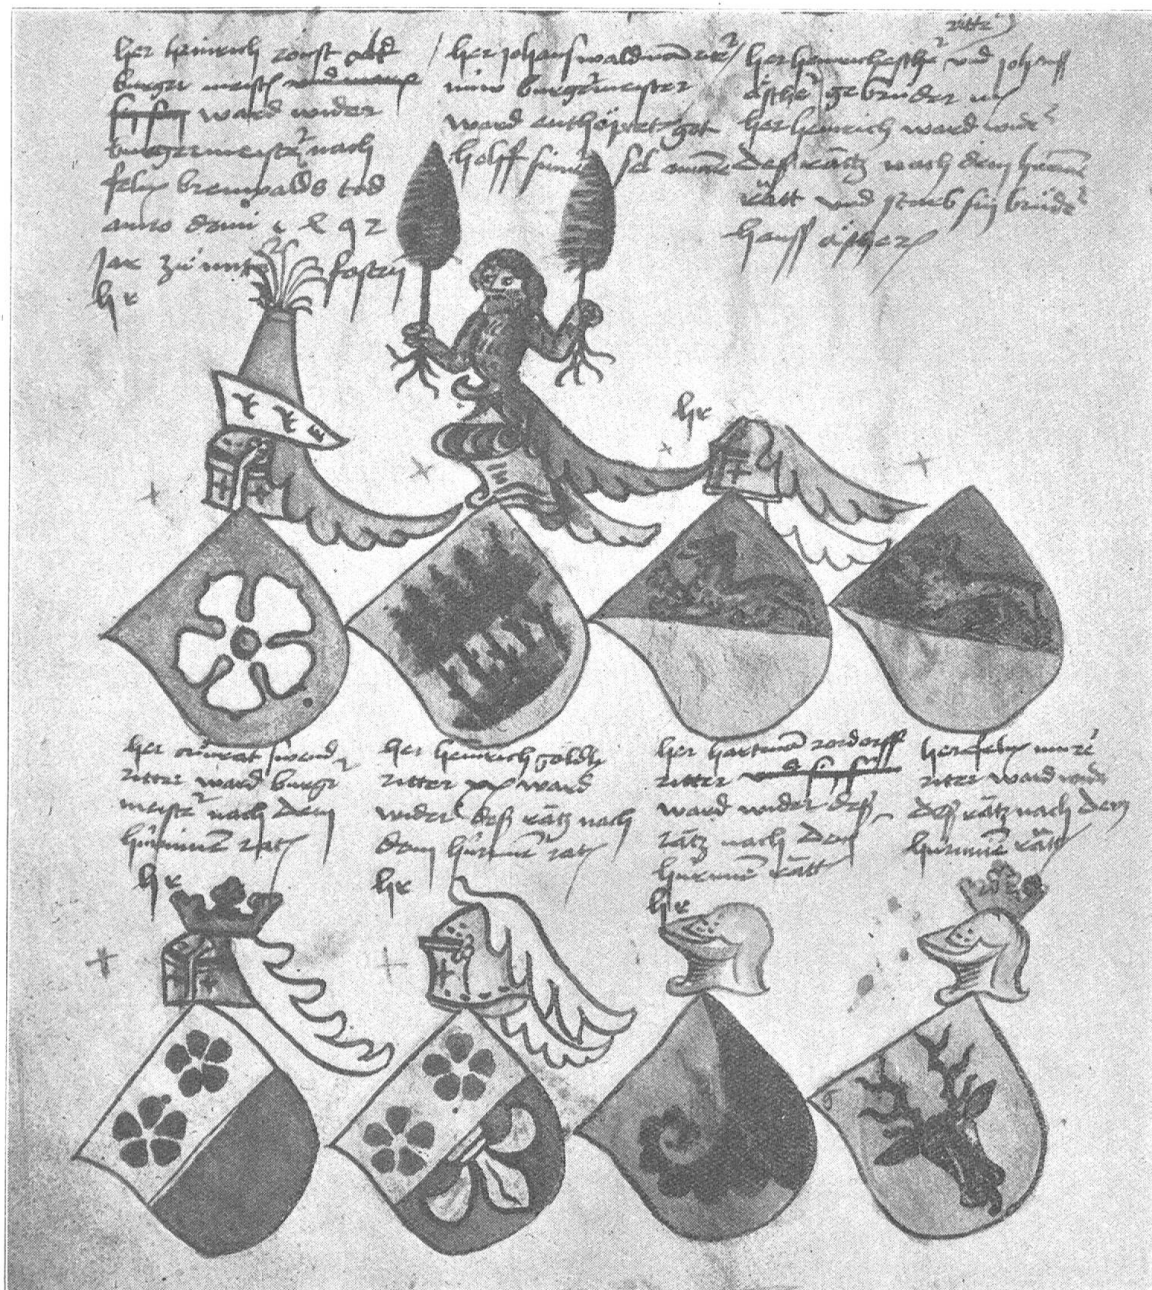 her heinrich roust alt
burger meister
ward wider
burgermeister nach
felix brenwalds tod
anno domi
jar zu
hr
her johans waldman ritter
burgermeister
ward enthoptet got
helff siner sel amen
ritter
her heinrich escher und johans
äscher gebrüder
her heinrich ward wider
deß rätz nach dem hürnen
rätt und starb sin brüder
hanss äscher
hr
her cunrat swend
ritter ward burger
meister nach dem
hürninen rat
hr
her heinrich göldli
ritter ward
wider deß rätz nach
dem hürnen rat
hr
her hartman rordorff
ritter
ward wider deß
rätz nach dem
hürnnen rätt
hr
her felix
ritter ward wider
deß rätz nach dem
hürnnen rätt